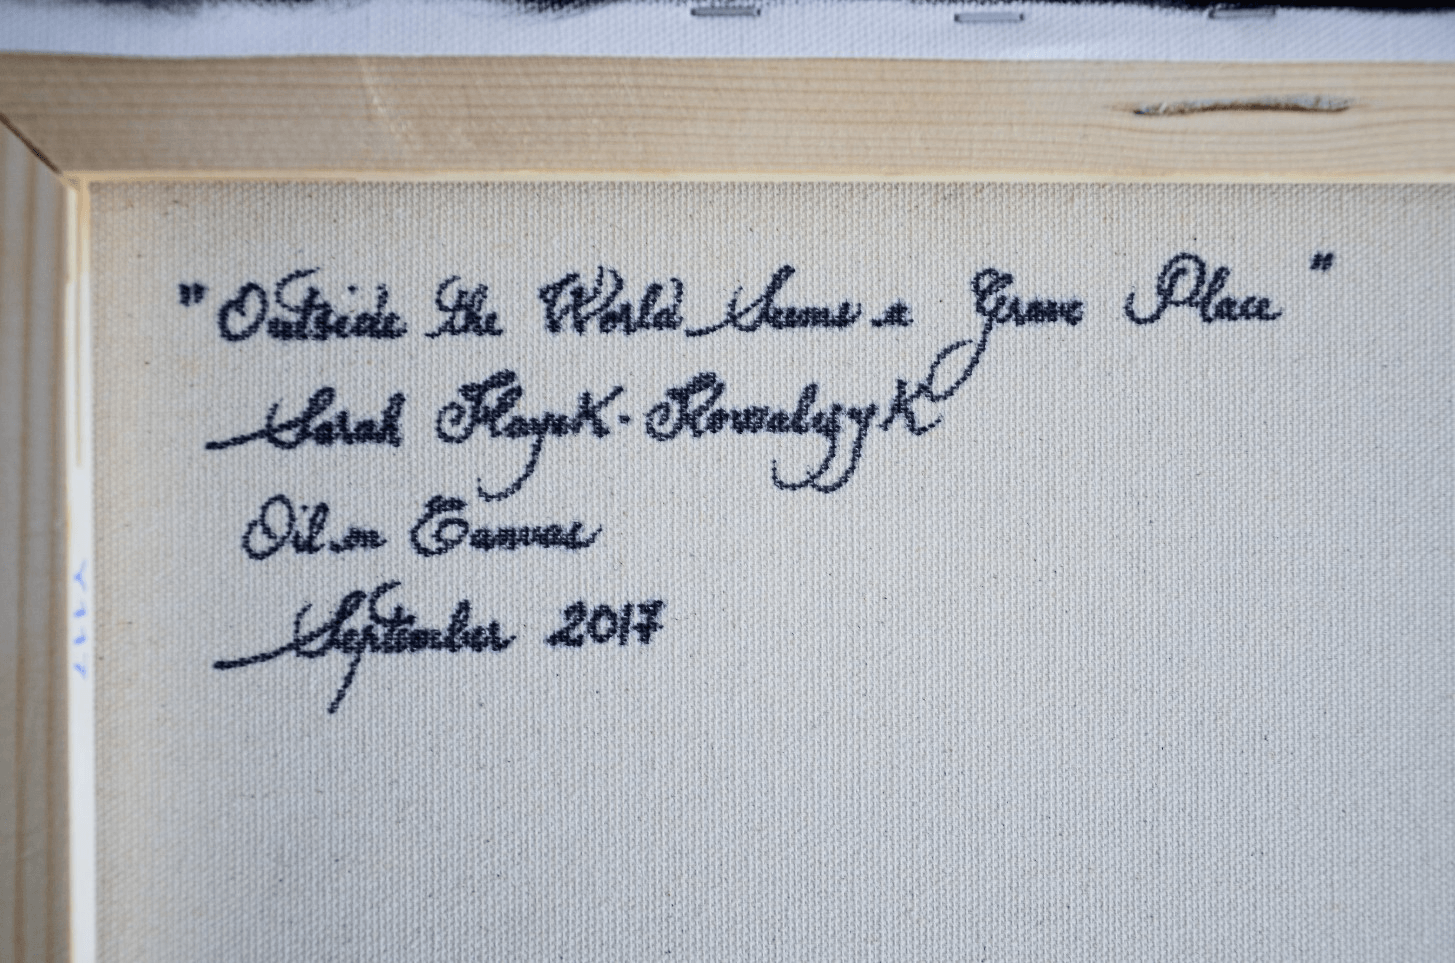 "Outside the World Seems a Grave Place"
Sarah Hayek-Kowalczyk
Oil on Canvas
September 2017